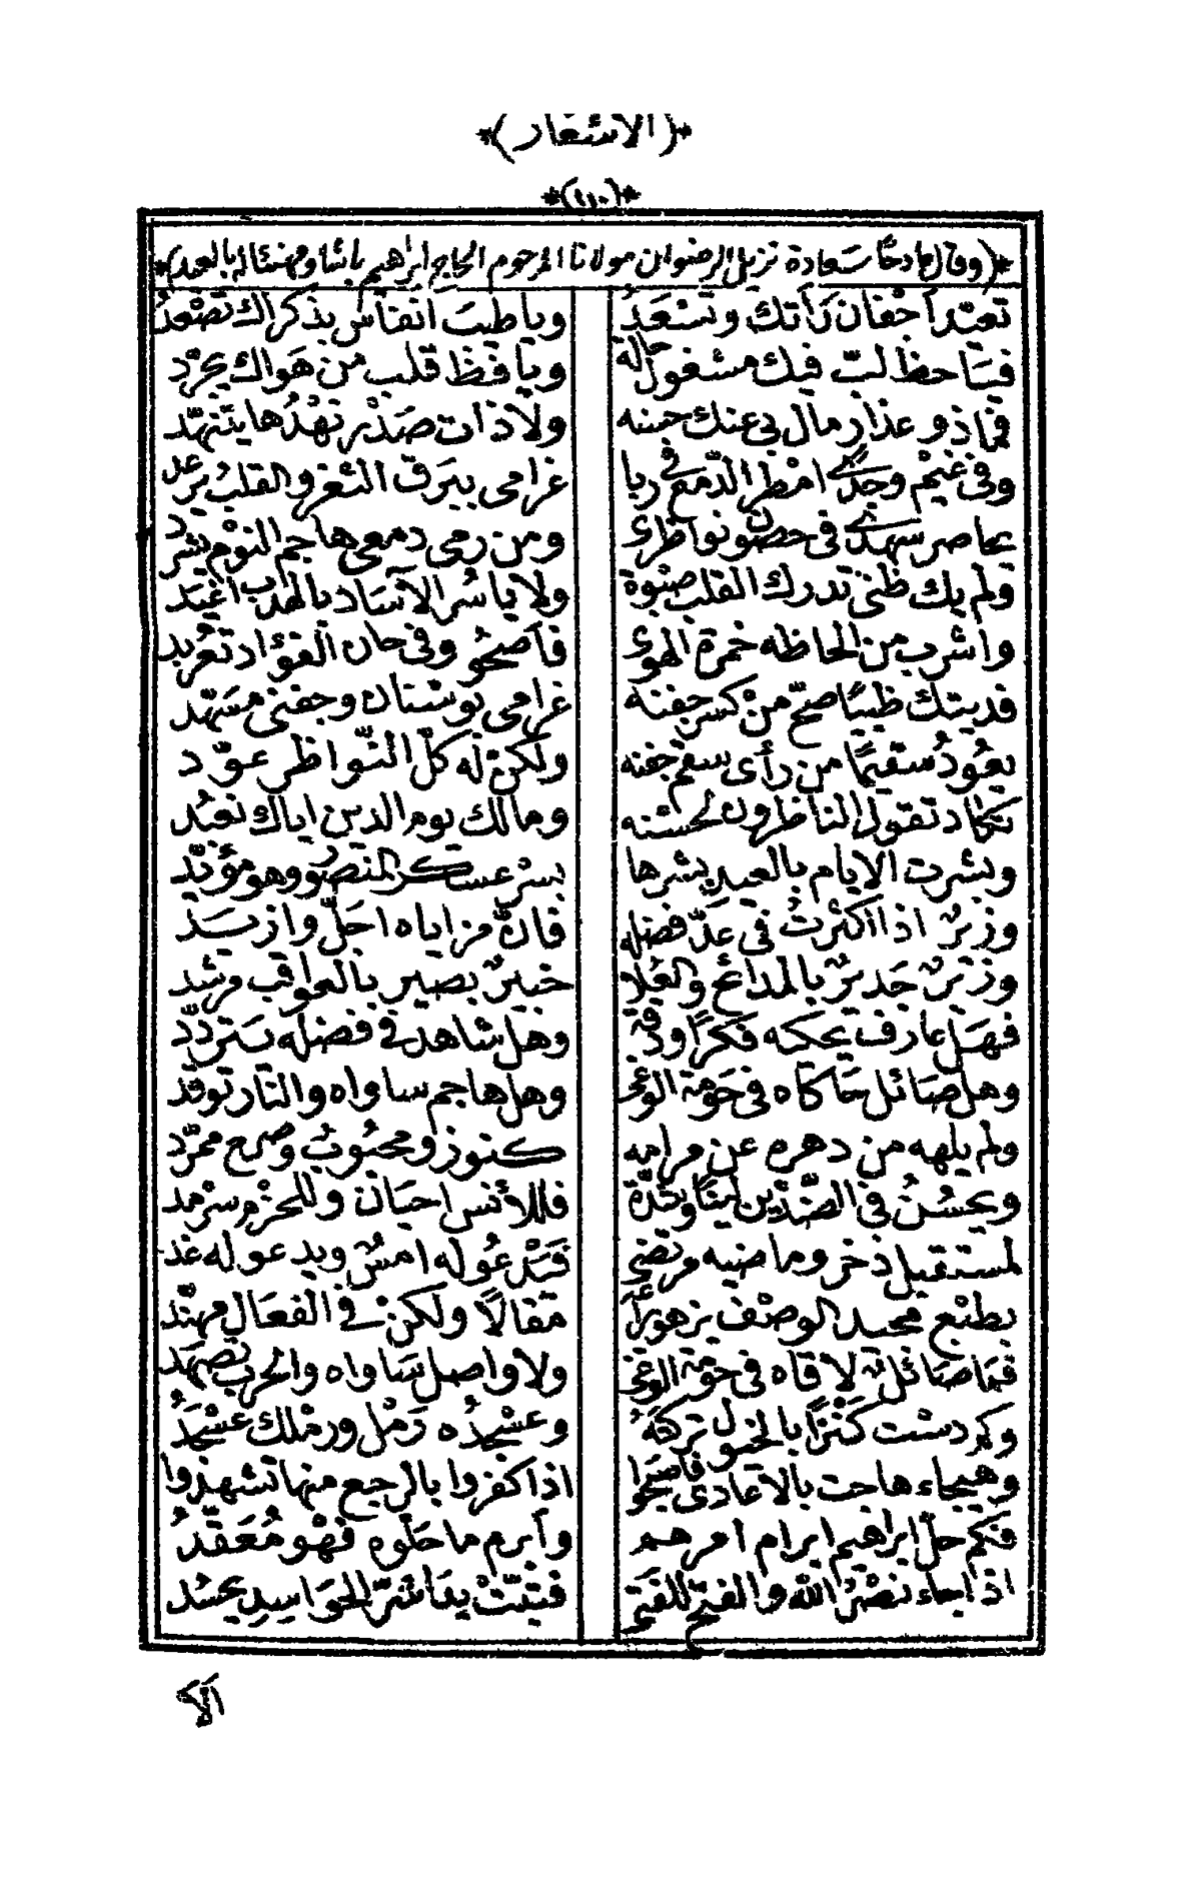 *(الاشعار)*
*(٤١٠)*
*(وقال مادحًا سعادة نزيل الرضوان مولانا المرحوم الحاج ابراهيم باشا ومهنئا له بالعيد)*
تعيّد أجْفان رَأتك وتسْعَدُ ويا طيبَ أنفاسٍ بذكراك تصْعَدُ
فيَا حظ لبّ فيك مشغول حاله ويا فظ قلب من هَواك يجرّد
فما ذو عذار مال بى عنك حبنه ولا ذات صَدْر نهْدُها يتنهّد
وفى غيْم وجدى امْطر الدّمع فى ربا غرامى ببَرق الثغر والقلبُ يرعد
يحاصر سهدى فى حصون نواظرى ومن رمى دمعى هاجم النوْم يشرد
ولم يك ظنى تدرك القلب صبْوة ولا ياسُر الآسَاد بالهدب اغْيَد
واشرب من الحاظه خمرة الهوى فأصْحُو وفى حان الفؤاد تعرْبد
فديتك ظبيًا صحّ منْ كسر جفنه غرامى بوسْنان وجفنى مسَهّد
يعُودُ سقيمًا من رأى سقم جفنه ولكنْ له كلّ النّواظر عوّد
تكاد تقول الناظرون لحسْنه ومالك يوم الدين اياك نعبُد
وبشرت الايام بالعيد بشرها بسر عساكر المنصُور وهو مؤيّد
وزيرٌ اذا اكثرتُ فى عدّ فضله فانّ مزاياه اجَلّ وازيَد
وزيرٌ جَديرٌ بالمدائح والعُلا خبيرٌ بصير بالعواقب مرشد
فهَل عارف يحكيه فكرًا ودقة وهل شاهد فى فضله يَتردّد
وهل صَائل حَاكاه فى حَومة الوغى وهل هاجم ساواه والنار توقد
ولم يلهه من دهره عن مرامه كنوز ومحبُوبٌ وصرح ممرّد
ويحسُنُ فى الضّدّين لينًا وشدّة فللأنس احيَان وللحزْم سرْمد
لمستقبل ذخر وماضيه مرتضى فيَدْعُو له امسٌ ويدعو له غد
بطبْع مجيد الوصْف يزهو رأ مقالًا ولكنْ فى الفعَال مهنّد
فما صَائلٌ لاقاه فى حَومة الوغى ولا واصل سَاواه والحرب تصْهَد
وكم دست كنْزًا بالخيول تركتهُ وعسْجدُه رَمْل ورمْلك عسْجَدُ
وهيجاء هاجت بالاعادى فاصبحوا اذا كفروا بالرجع منها تشهدوا
فكم حلّ ابراهيم ابرام امرهم وأبرم ما حَلوه فهْو مُعَقّدُ
اذا جاء نصْرُ الله والفتح للفتى فتبّتْ يدَا شرّ الحوَاسِدِ يحسُد
ألا